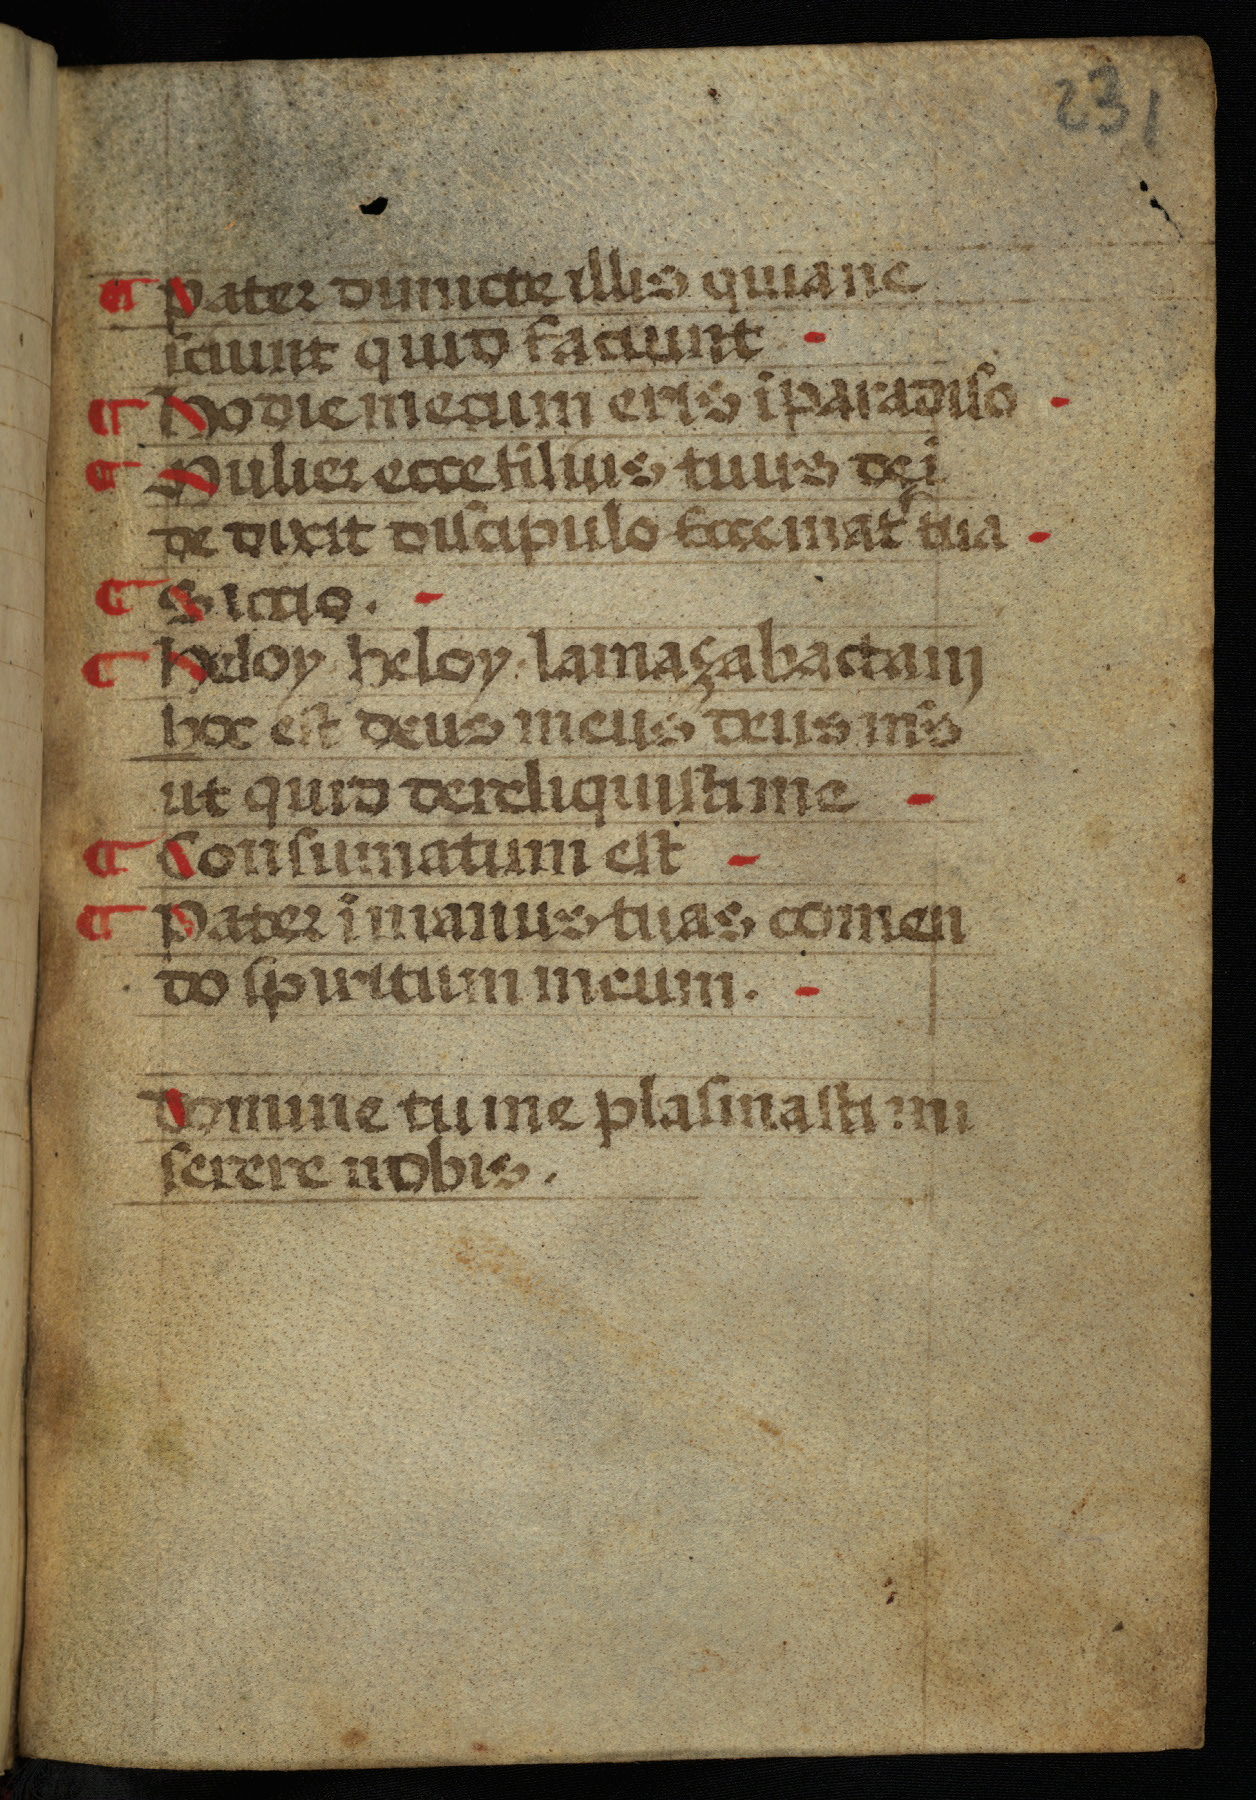 231
¶ Pater dimicte illis quia ne
sciunt quid faciunt
¶ Hodie mecum eris i paradiso
¶ Mulier ecce filius tuus dei
de dixit discipulo Ecce mat̉ tua
¶ Siccio.
¶ Heloy heloy lamaçabactani
hoc est deus meus deus m̃s
ut quid dereliquisti me
¶ Consumatum est
¶ Pater i manus tuas comen
do spiritum meum.
Domine tu me plasmasti mi
serere nobis.